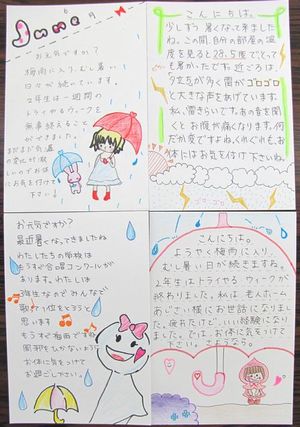 6月
June
お元気ですか?
梅雨に入り、むし暑い
日々が続いています。
2年生は一週間の
トライやるウィークを
無事終えること
ができました。
まだまだ気温
の変化が激
しいのでお体
に気を付けて
下さい。
こんにちは。
少しずつ暑くなって来ました
ね。この間、自分の部屋の温
度を見ると28.5度でとって
も暑かったです。近ごろは、
夕立が多く雷がゴロゴロ
と大きな声をあげています。
私は雷きらいです。あの音を聞
くとお腹が痛くなります。何
だか変ですよね。くれぐれも、お
体にはお気を付け下さいね。
お元気ですか?
最近暑くなってきましたね
わたしたちの学校は
もうすぐ合唱コンクールが
あります。わたしは
3年生なのでみんなで
歌い1位をとろうと
思います
もうすぐ梅雨ですね
風邪をひかないように
お体に気をつけて
お過ごし下さい。
こんにちは。
ようやく梅雨に入り、
むし暑い日が続きますね。
2年生はトライやるウィークが
終わりました。私は、老人ホーム
あじさい様にお世話になりまし
た。疲れたけど、いい経験になり
ました。では、お体に気をつけて
下さい。さようなら。